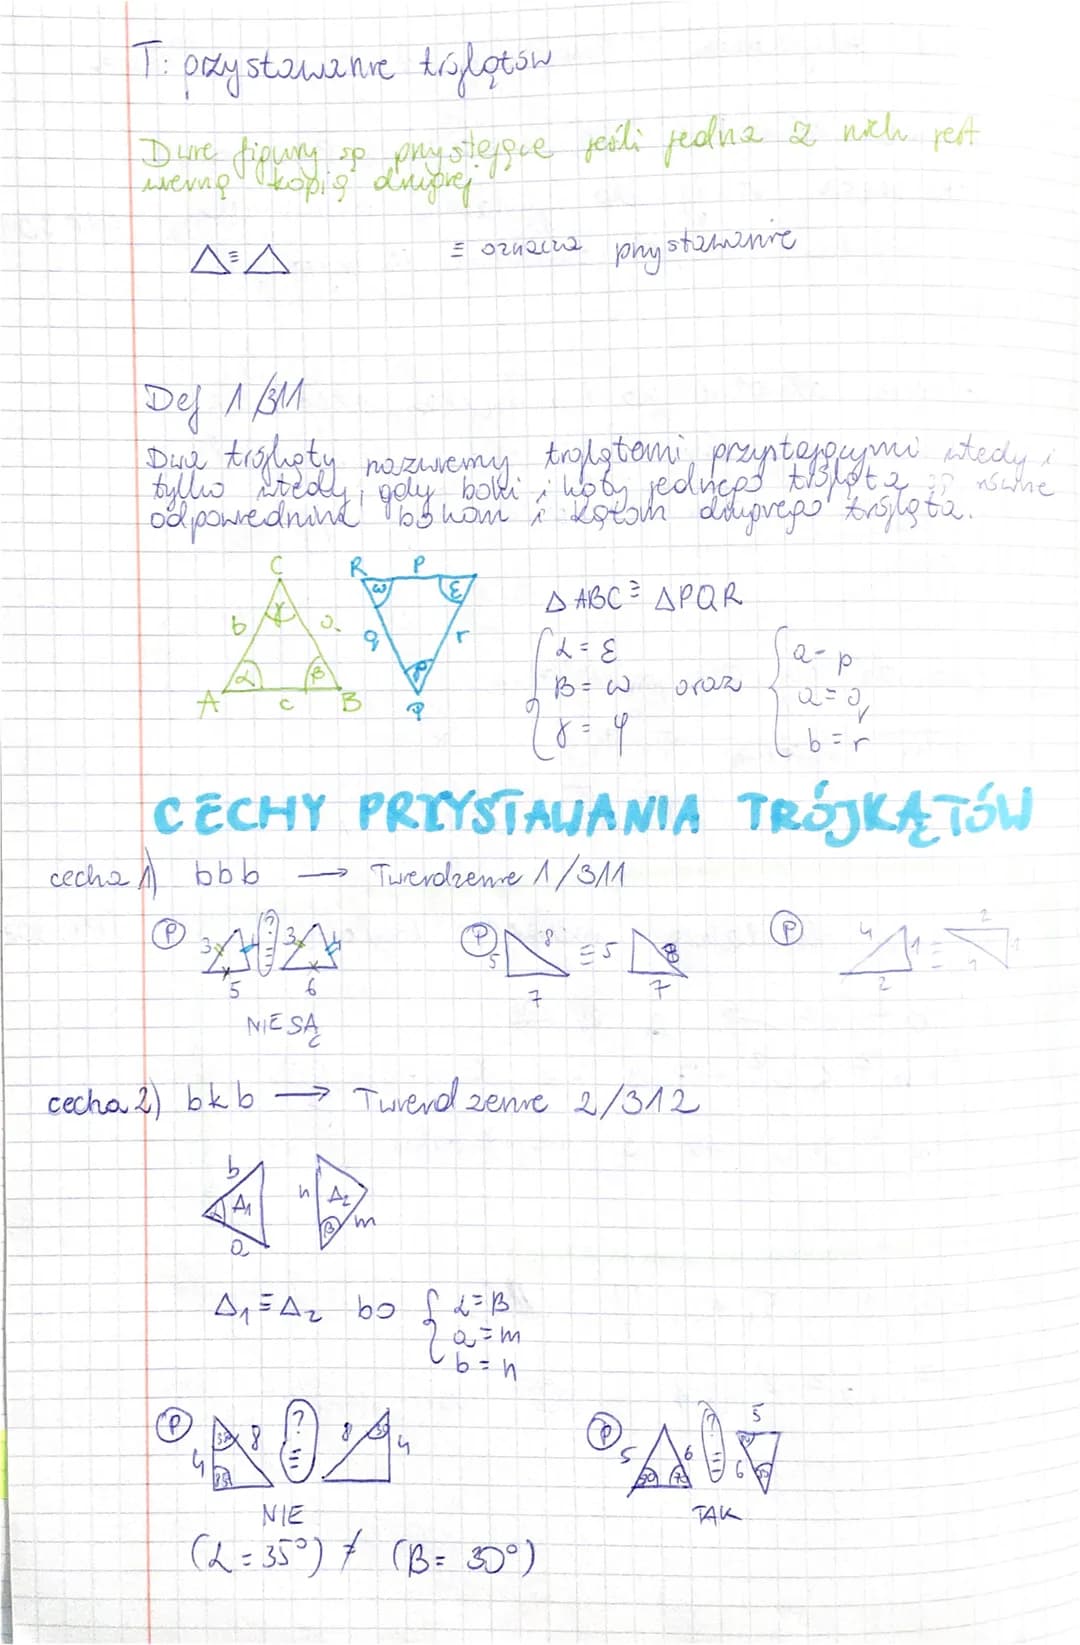 T: przystawanie trójkątów
Dwie figury są przystające jeśli jedna z nich jest
wierną kopią drugiej
△≡△ ≡ oznacza przystawanie
Def 1/311
Dwa trójkąty nazwiemy trójkątami przystającymi wtedy i
tylko wtedy, gdy boki i kąty jednego trójkąta są równe
odpowiednim bokom i kątom drugiego trójkąta.
C R P
ω ε
b γ a q r
α β φ
A c B P
△ABC ≡ △PQR
α = ε
β = ω oraz
γ = φ
a - p
a = q
b = r
CECHY PRZYSTAWANIA TRÓJKĄTÓW
cecha 1) bbb → Twierdzenie 1/311
P 3 4 ? ≡ 3 4 P 5 8 ≡ 5 8 P 4 1 ≡ 2 1
5 6 7 7 2 4
NIE SĄ
cecha 2) bkb → Twierdzenie 2/312
b n
α Δ1 Δ2
a β m
Δ1 ≡ Δ2 bo
α = β
a = m
b = n
P 4 8 ? ≡ 8 4 P 5 6 ? ≡ 5 6
NIE TAK
(α = 35°) ≠ (β = 30°)